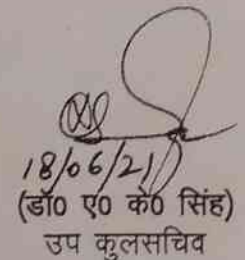 18/06/21
(डॉ0 ए0 के0 सिंह)
उप कुलसचिव